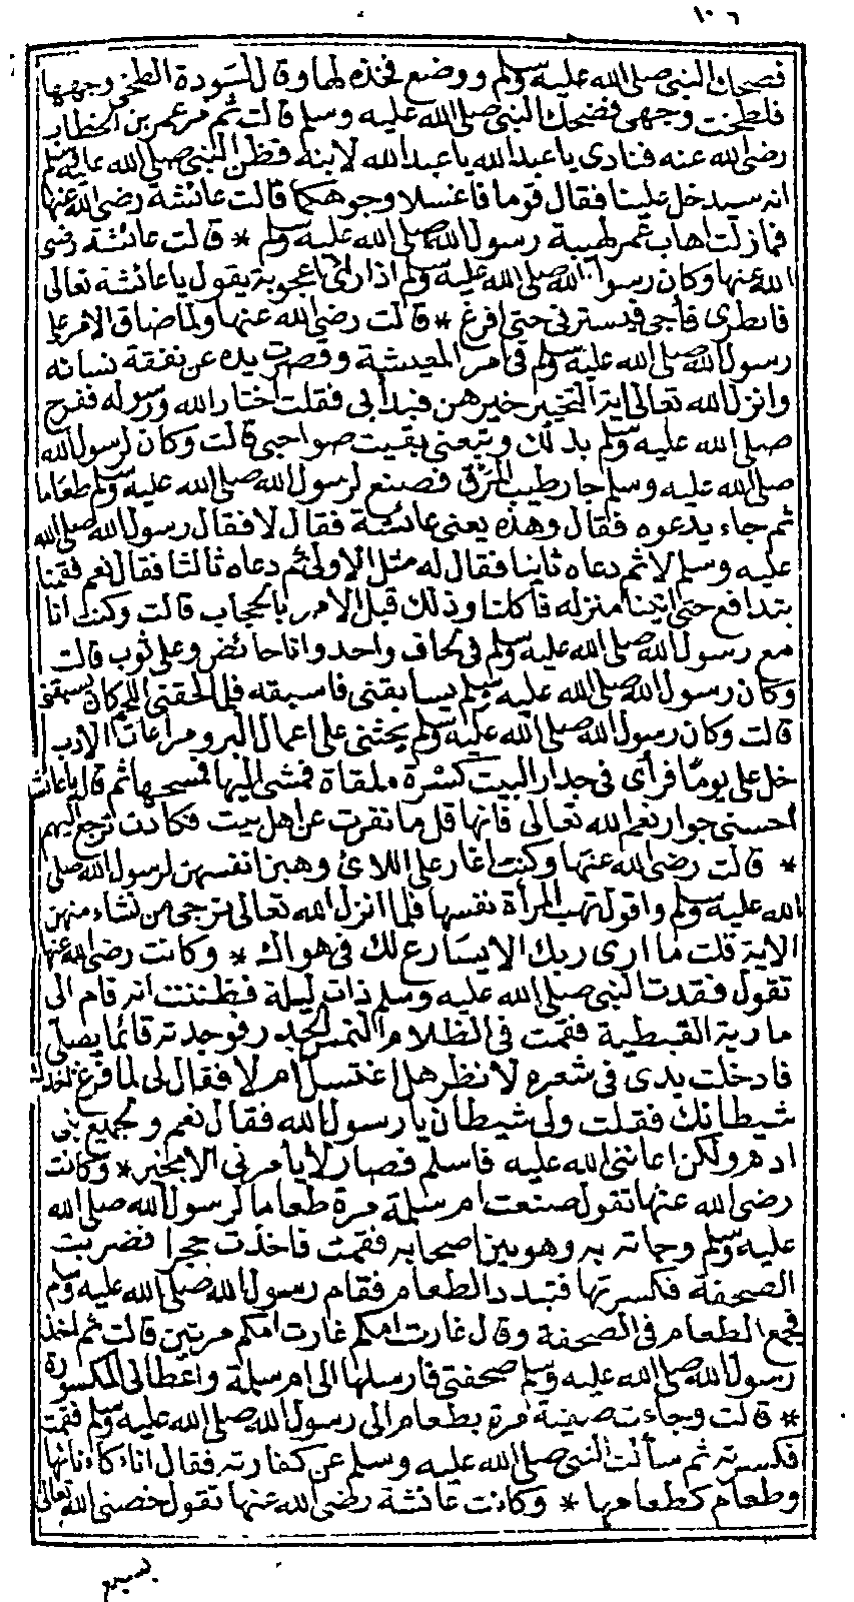 ١٠٦
فضحك النبى صلى الله عليه وسلم ووضع فخذه لها وقال لسودة الطخى وجهها
فلطخت وجهى فضحك النبى صلى الله عليه وسلم قالت ثم مر عمر بن الخطاب
رضى الله عنه فنادى يا عبد الله يا عبد الله لابنه فظن النبى صلى الله عليه وسلم
انه سيدخل علينا فقال قوما فاغسلا وجوهكما قالت عائشة رضى الله عنها
فما زلت اهاب عمر لهيبة رسول الله صلى الله عليه وسلم * قالت عائشة رضى
الله عنها وكان رسول الله صلى الله عليه وسلم اذا رأى اعجوبة يقول يا عائشة تعالى
فانظرى فأجى فيسترنى حتى افرغ * قالت رضى الله عنها ولما ضاق الامر على
رسول الله صلى الله عليه وسلم فى امر المعيشة وقصرت يده عن نفقة نسائه
وانزل الله تعالى اية التخيير خيرهن فبدأ بى فقلت اختار الله ورسوله ففرح
صلى الله عليه وسلم بذلك وتبعنى بقيت صواحبى قالت وكان لرسول الله
صلى الله عليه وسلم جار طيب المرق فصنع لرسول الله صلى الله عليه وسلم طعاما
ثم جاء يدعوه فقال وهذه يعنى عائشة فقال لا فقال رسول الله صلى الله
عليه وسلم لا ثم دعاه ثانيا فقال له مثل الاولى ثم دعاه ثالثا فقال نعم فقمنا
نتدافع حتى اتينا منزله فأكلنا وذلك قبل الامر بالحجاب قالت وكنت انا
مع رسول الله صلى الله عليه وسلم فى لحاف واحد وانا حائض وعلى ثوب قالت
وكان رسول الله صلى الله عليه وسلم يسابقنى فاسبقه فلما لحقنى اللحم كان يسبقنى
قالت وكان رسول الله صلى الله عليه وسلم يحثنى على اعمال البر ومراعات الادب
خل على يوما فرأى فى جدار البيت كسرة ملقاة فمشى اليها فمسحها ثم قال يا عائشة
احسنى جوار نعم الله تعالى فانها قل ما نفرت عن اهل بيت فكادت ترجع اليهم
* قالت رضى الله عنها وكنت اغار على اللائى وهبن انفسهن لرسول الله صلى
الله عليه وسلم واقول تهب المرأة نفسها فلما انزل الله تعالى ترجى من تشاء منهن
الاية قلت ما ارى ربك الا يسارع لك فى هواك * وكانت رضى الله عنها
تقول فقدت النبى صلى الله عليه وسلم ذات ليلة فظننت انه قام الى
مارية القبطية فقمت فى الظلام التمس الجدر فوجدته قائما يصلى
فادخلت يدى فى شعره لانظر هل اغتسل ام لا فقال لى لما فرغ اخذك
شيطانك فقلت ولى شيطان يا رسول الله فقال نعم ولجميع بنى
ادم ولكن اعاننى الله عليه فاسلم فصار لا يأمرنى الا بخير * وكانت
رضى الله عنها تقول صنعت ام سلمة مرة طعاما لرسول الله صلى الله
عليه وسلم وجاءته به وهو بين اصحابه فقمت فاخذت حجرا فضربت
الصحفة فكسرتها فتبدد الطعام فقام رسول الله صلى الله عليه وسلم
فجمع الطعام فى الصحفة وقال غارت امكم غارت امكم مرتين قالت ثم اخذ
رسول الله صلى الله عليه وسلم صحفتى فارسلها الى ام سلمة واعطانى المكسورة
* قالت وجاءت صفية مرة بطعام الى رسول الله صلى الله عليه وسلم فقمت
فكسرته ثم سألت النبى صلى الله عليه وسلم عن كفارته فقال اناء كاناثها
وطعام كطعامها * وكانت عائشة رضى الله عنها تقول خصنى الله تعالى
بسبع